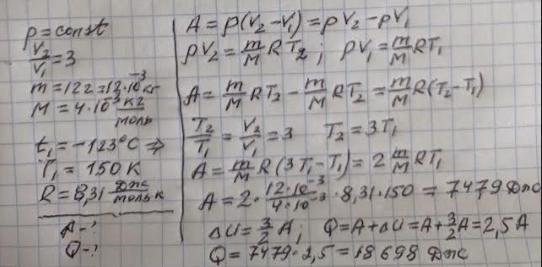 p = const
V₂/V₁ = 3
m = 12г = 12·10⁻³ кг
M = 4·10⁻³ кг/моль
t₁ = -123°C ⇒
T₁ = 150 К
R = 8,31 Дж/моль·К
A - ?
Q - ?
A = p(V₂-V₁) = pV₂ - pV₁
pV₂ = m/M RT₂ ; pV₁ = m/M RT₁
A = m/M RT₂ - m/M RT₂ = m/M R(T₂-T₁)
T₂/T₁ = V₂/V₁ = 3 T₂ = 3T₁
A = m/M R(3T₁-T₁) = 2 m/M RT₁
A = 2· 12·10⁻³/4·10⁻³ ·8,31·150 = 7479 Дж
ΔU = 3/2 A; Q = A+ΔU = A+3/2A = 2,5A
Q = 7479·2,5 = 18698 Дж